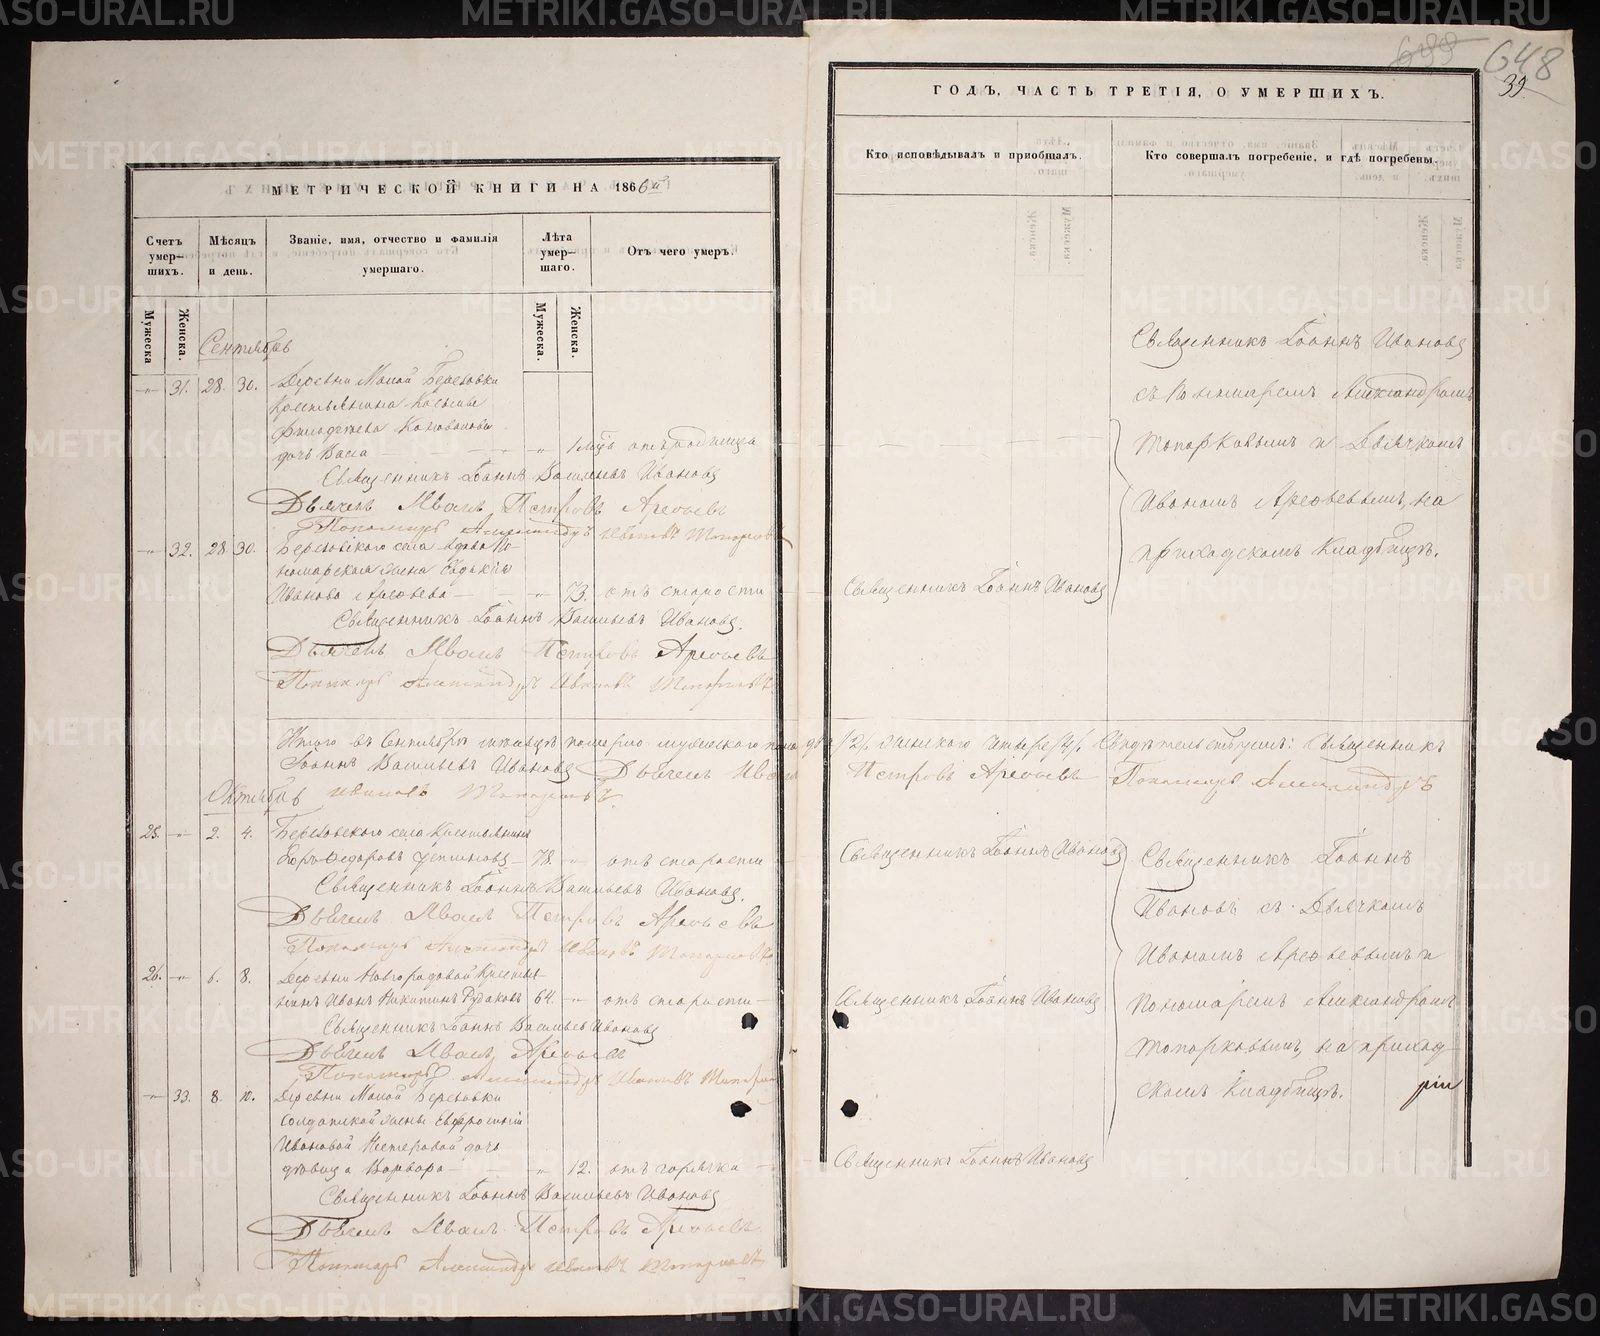 МЕТРИЧЕСКОЙ КНИГИ НА 1866й
Счетъ умер-шихъ.
Мѣсяцъ и день.
Званіе, имя, отчество и фамилія умершаго.
Лѣта умер-шаго.
Отъ чего умеръ.
Мужеска
Женска.
Мужеска.
Женска.
Сентябрь
31. 28. 30. Деревни Малой Березовки
Крестьянина
дочь
Священникъ Іоаннъ Васильевъ Ивановъ
Дьячекъ Иванъ Петровъ Арефьевъ
Пономарь Александръ Ивановъ Топорковъ
32. 28 30. Березовскаго села вдова По-
номарская жена
Иванова Арефьева 73. отъ старости
Священникъ Іоаннъ Васильевъ Ивановъ.
Дьячекъ Иванъ Петровъ Арефьевъ
Пономарь Александръ Ивановъ Топорковъ
Итого въ Сентябрѣ мѣсяцѣ померло мужескаго пола два /2/, женскаго четыре /4/. Свидѣтельствуемъ: Священникъ
Іоаннъ Васильевъ Ивановъ Дьячекъ Иванъ Петровъ Арефьевъ Пономарь Александръ
Ивановъ Топорковъ.
Октябрь
25. 2. 4. Березовскаго села Крестьянинъ
Федоровъ 78. отъ старости
Священникъ Іоаннъ Васильевъ Ивановъ.
Дьячекъ Иванъ Петровъ Арефьевъ
Пономарь Александръ Ивановъ Топорковъ.
26. 6. 8. Деревни Новгородовой Крестья-
нинъ Иванъ Никитинъ Рудаковъ 64. отъ старости
Священникъ Іоаннъ Васильевъ Ивановъ
Дьячекъ Иванъ Арефьевъ
Пономарь Александръ Ивановъ Топорковъ
33. 8. 10. Деревни Малой Березовки
солдатской жены
Ивановой Нестеровой дочь
дѣвица Варвара 12. отъ горячки
Священникъ Іоаннъ Васильевъ Ивановъ
Дьячекъ Иванъ Петровъ Арефьевъ
Пономарь Александръ Ивановъ Топорковъ
648
39.
ГОДЪ, ЧАСТЬ ТРЕТІЯ, О УМЕРШИХЪ.
Кто исповѣдывалъ и пріобщалъ.
Кто совершалъ погребеніе, и гдѣ погребены.
Священникъ Іоаннъ Ивановъ
съ Пономаремъ Александромъ
Топорковымъ и Дьячкомъ
Иваномъ Арефьевымъ, на
приходскомъ кладбищѣ.
Священникъ Іоаннъ Ивановъ
Священникъ Іоаннъ Ивановъ
Священникъ Іоаннъ
Ивановъ съ Дьячкомъ
Иваномъ Арефьевымъ и
Священникъ Іоаннъ Ивановъ
Пономаремъ Александромъ
Топорковымъ, на приход-
скомъ кладбищѣ.
Священникъ Іоаннъ Ивановъ
METRIKI.GASO-URAL.RU